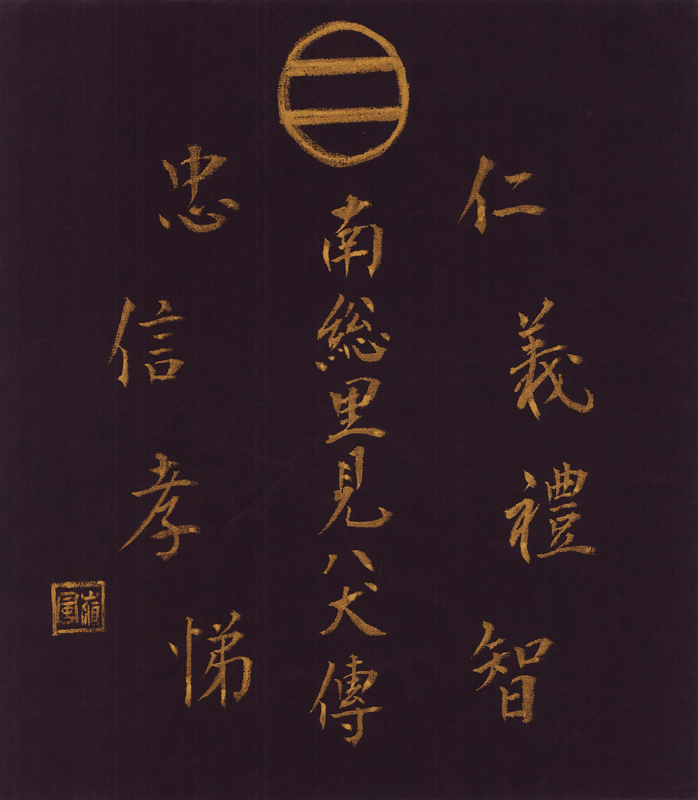 仁
義
禮
智
南総里見八犬傳
忠
信
孝
悌